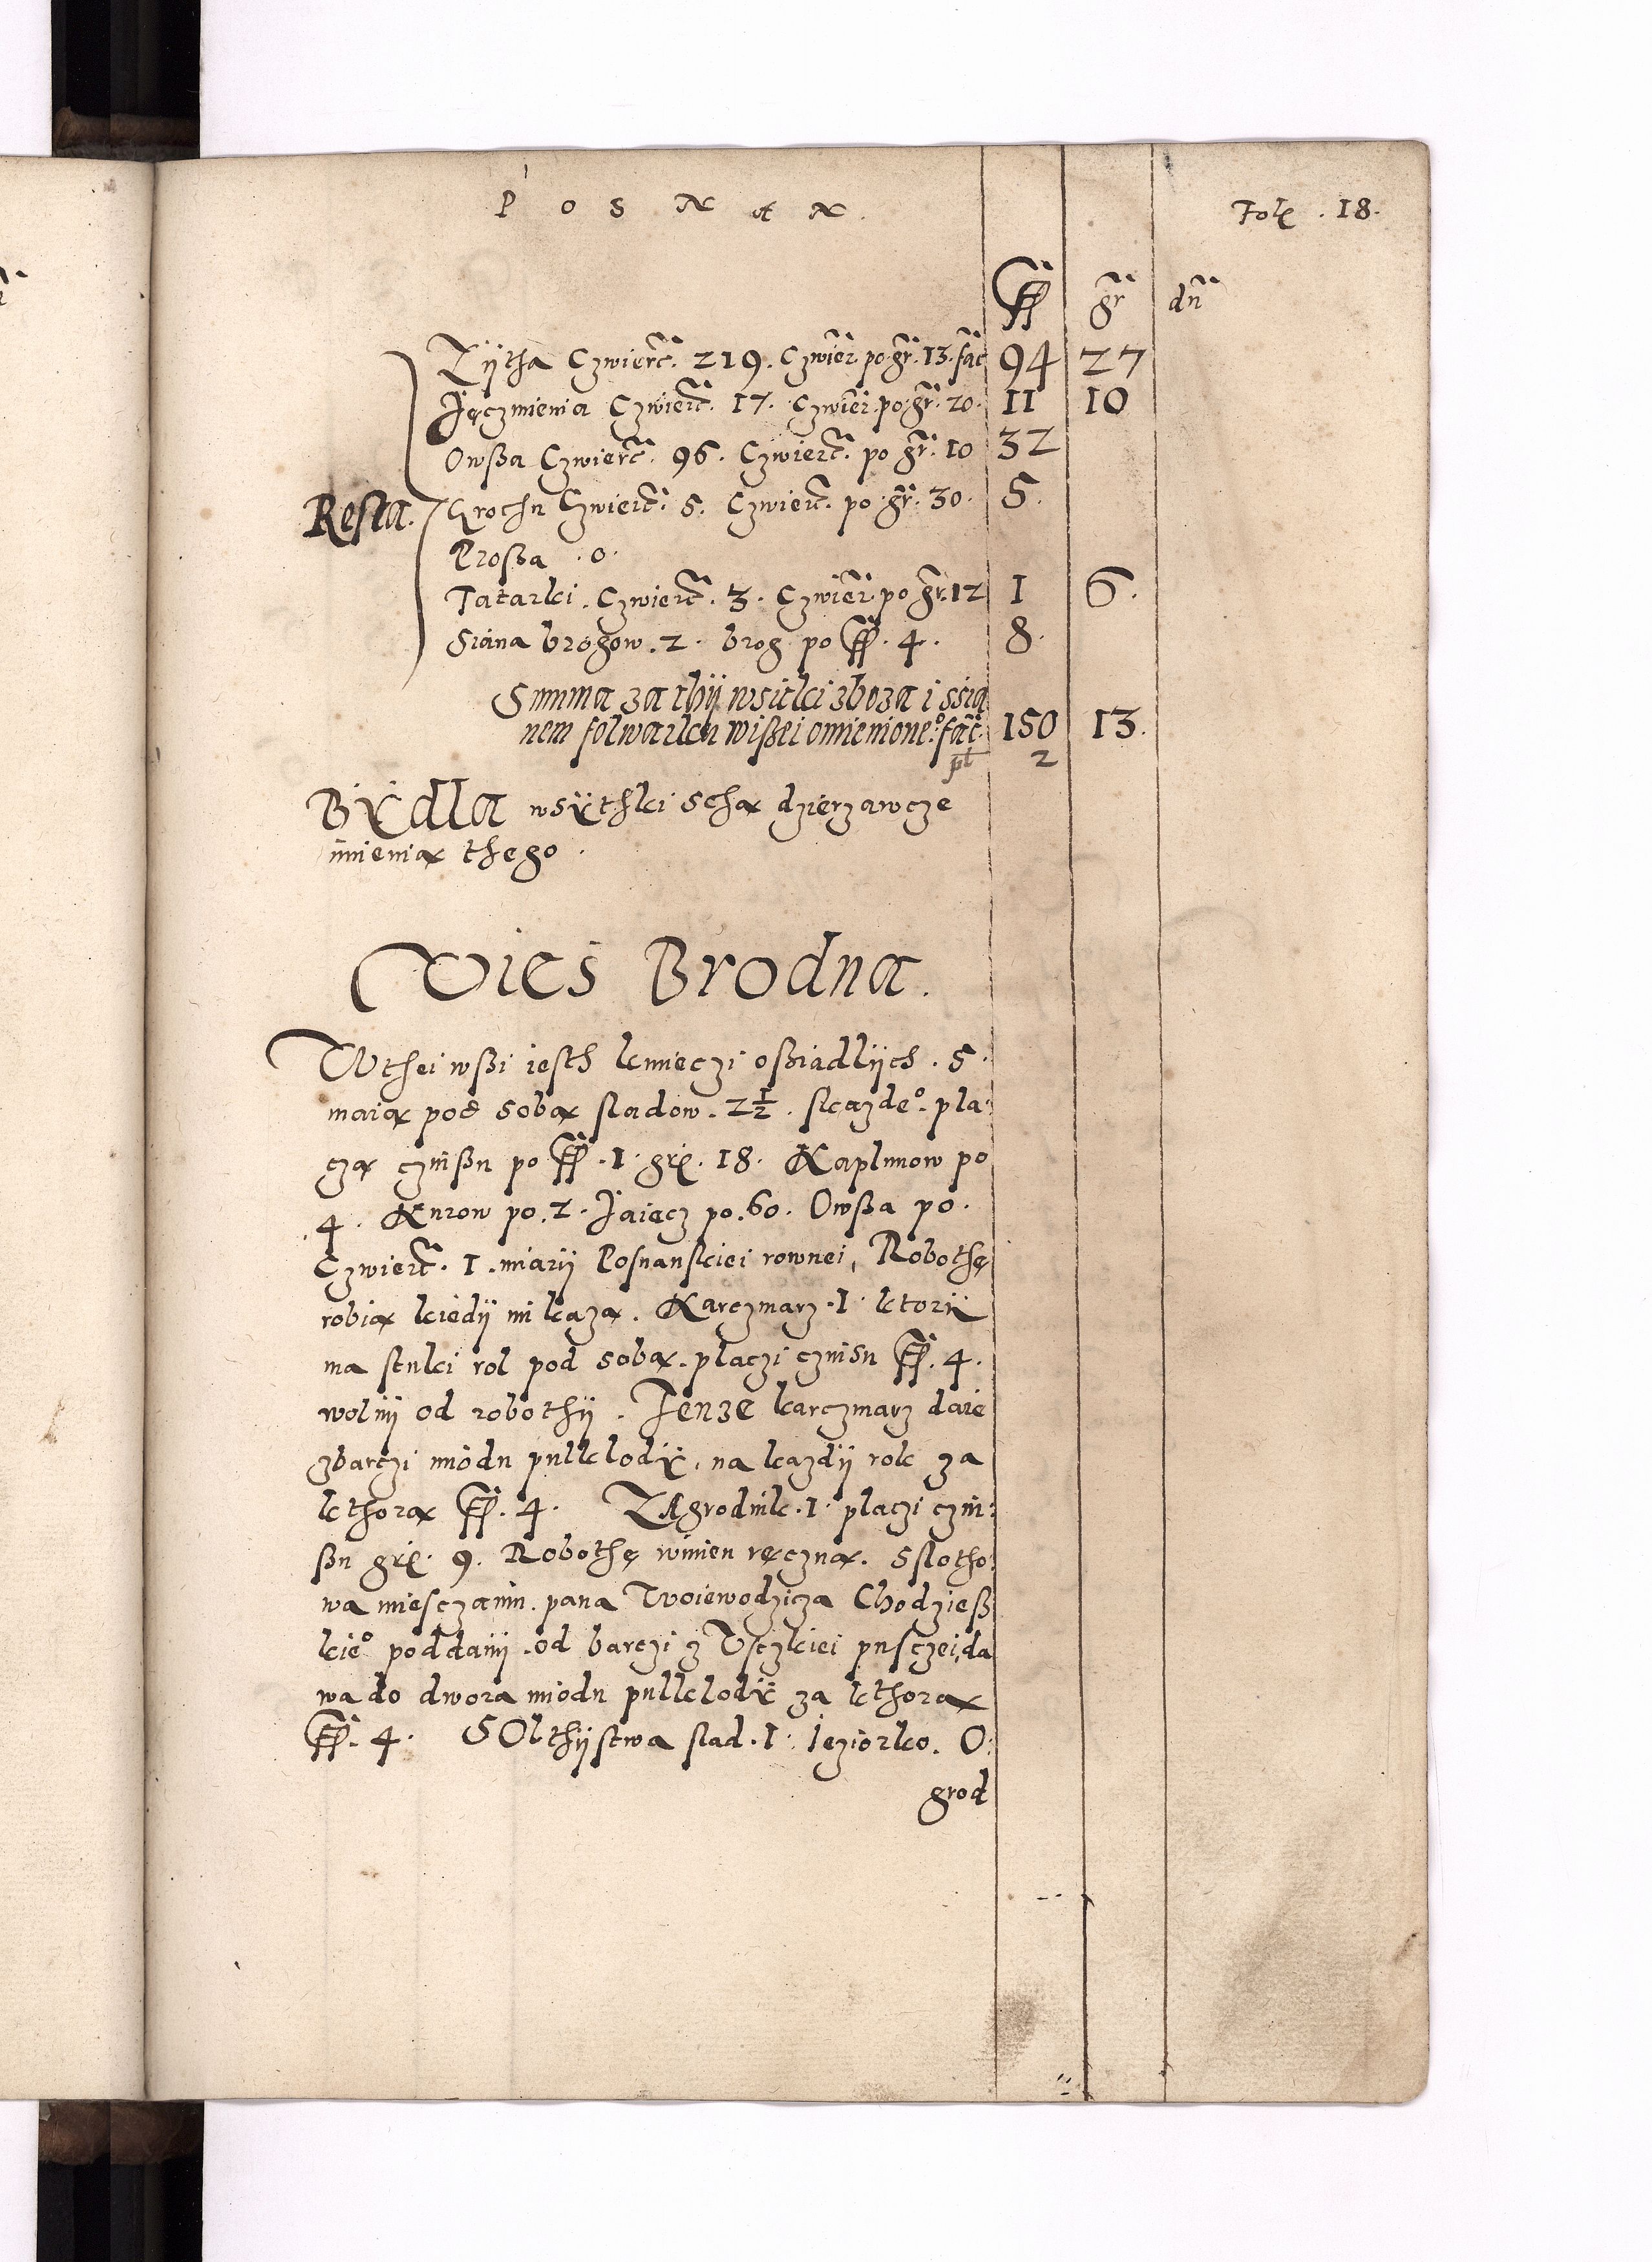 P O S N A N.
Fol. 18.
ff gr dn
Zÿtha Czwierť. 219. Czwier po gr. 13. fac 94 27
Jęczmienia Czwierť. 17. Czwier. po gr. 20. 11 10
Owßa Czwierť. 96. Czwierť. po gr. 10 32
Resta. Grochu Czwierť. 5. Czwierť. po gr. 30. 5.
Proßa .0.
Tatarki. Czwierť. 3. Czwier. po gr. 12 1 6.
Siana brogow. 2. brog po ff. 4. 8.
Summa za thÿ wsitki zboza i ssia
nem folwarku wißei omienione.° fac. 150 13.
pł 2
Bÿdla wsÿthki scha dzierzawcze
imienia thego.
Wies Brodna.
W thei wßi iesth kmieczi oßiadlÿch. 5.
maia pod soba sladow. 2½. s kazde°. pla:
cza czinßu po ff. 1. gr. 18. Kaplunow po
4. Kurow po. 2. Jaiecz po. 60. Owßa po.
Czwierť. 1. miarÿ Posnanskiei rownei, Robothę
robia kiedÿ im kaza. Karczmarz. 1. ktorÿ
ma stuki rol pod soba. placzi czinsu ff. 4.
wolnÿ od robothÿ. Tenze karczmarz daie
z barczi miodu pulklodÿ, na kazdÿ rok za
kthora ff. 4. ZAgrodnik. 1. placzi czin:
ßu gr. 9. Robothę winien ręczna. S slotho:
wa miesczanin. pana Woiewodzicza Chodzieß
kie° poddanÿ. od barczi z Usczkiei pusczei, da
wa do dwora miodu pulklodÿ za kthora
ff. 4. SOlthÿstwa slad. 1. Jeziorko. O:
grod